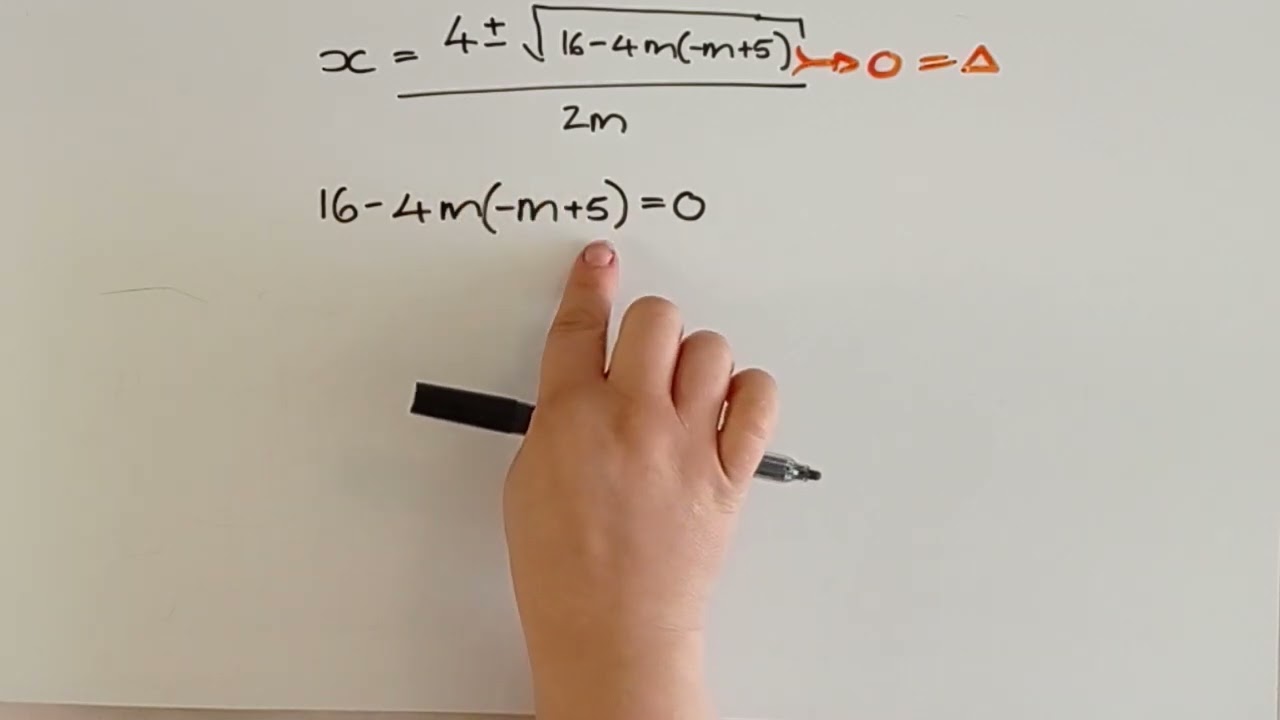 x = 4 ± √16 - 4m(-m+5) → 0 = Δ
2m
16 - 4m(-m+5) = 0